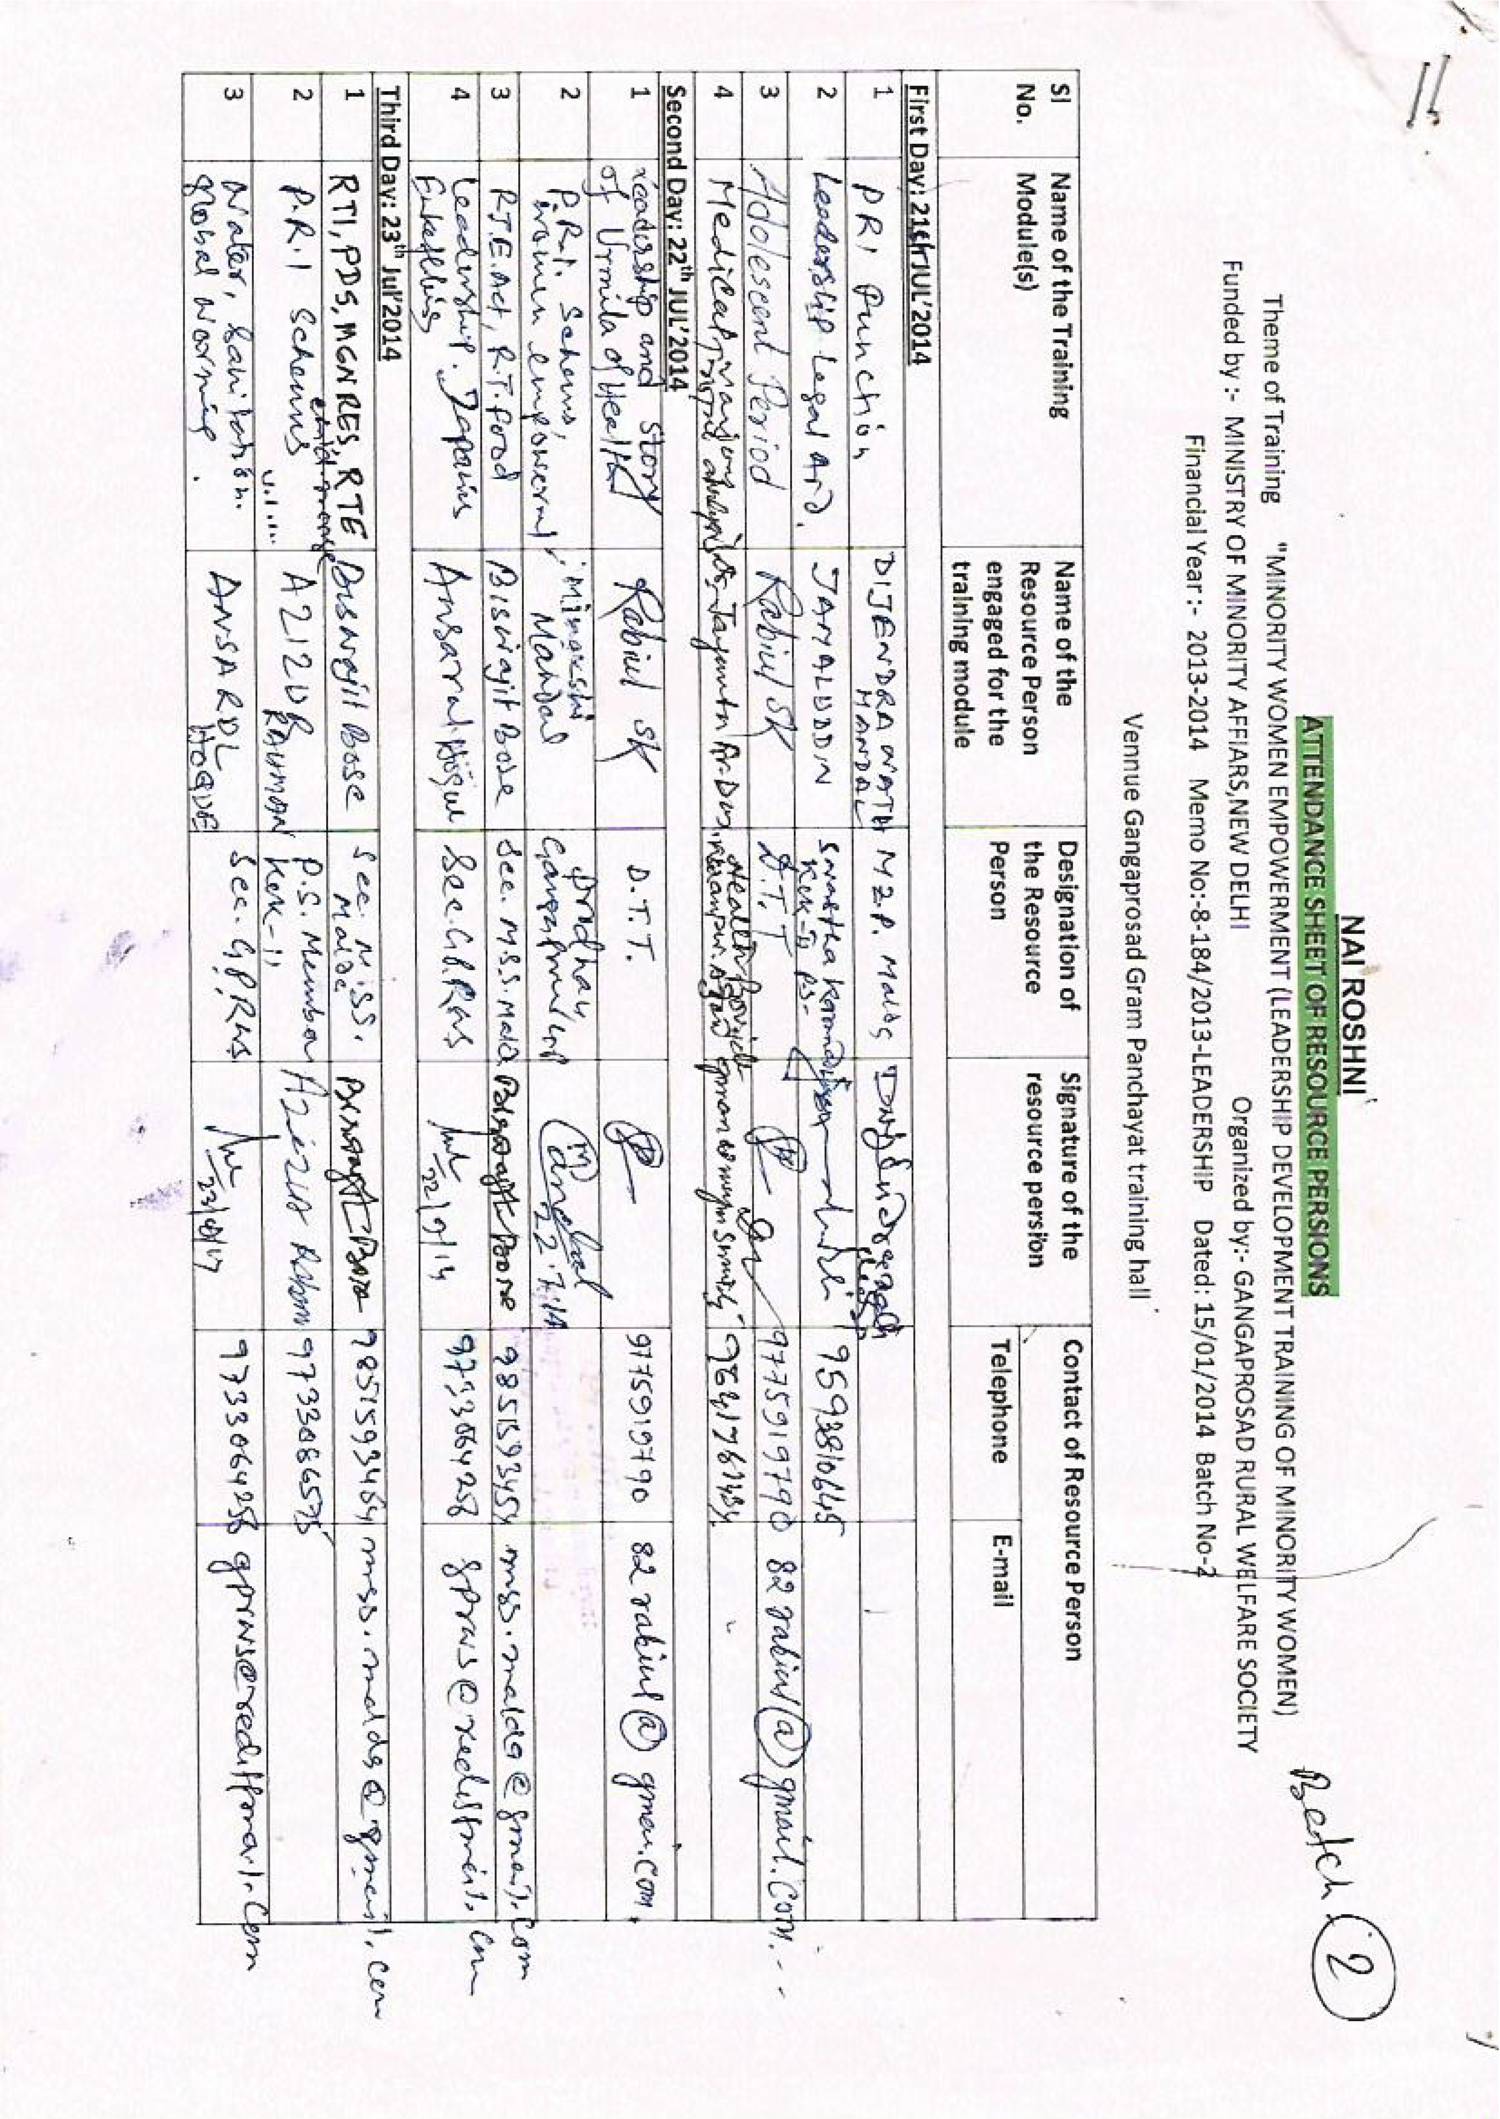 Betch : 2
NAI ROSHNI
ATTENDANCE SHEET OF RESOURCE PERSIONS
Theme of Training "MINORITY WOMEN EMPOWERMENT (LEADERSHIP DEVELOPMENT TRAINING OF MINORITY WOMEN)
Funded by :- MINISTRY OF MINORITY AFFIARS,NEW DELHI Organized by:- GANGAPROSAD RURAL WELFARE SOCIETY
Financial Year :- 2013-2014 Memo No:-8-184/2013-LEADERSHIP Dated: 15/01/2014 Batch No-2
Vennue Gangaprosad Gram Panchayat training hall
Sl No. Name of the Training Module(s) Name of the Resource Person engaged for the training module Designation of the Resource Person Signature of the resource persion Contact of Resource Person
Telephone E-mail
First Day: 21st JUL'2014
1 PRI Punction DIJENDRA NATH MANDAL M Z.P. Malda
2 Leadership Legal And. JAMALUDDIN 9593810645
3 Adolescent Period Rabiul SK D.T.T 9775919790 82rabiul@gmail.com
4 Medical
Second Day: 22th JUL'2014
1 Leadership and Story of Urmila of Health Rabiul SK D.T.T. 9775919790 82rabiul@gmai.com.
2 P.R.I. Schems, women empowerment Minakshi Mandal Prodhan
3 R.T.E. Act, R.T. Food Biswajit Bose Sec. M.S.S. Malda mss.malda@gmail.com
4 Leadership. Ansarul Hoque Sec. G.P.RWS 22/7/14 9733064258 gprws@rediffmail.com
Third Day: 23th Jul'2014
1 RTI, PDS, MGNRES, RTE Biswajit Bose Sec. M.S.S. Malda mss.malda@gmail.com
2 P.R.I Schemes AZIZUR RAHMAN P.S. Member 9733086575
3 Water, Sanitation. Global Warming. ANSARUL HOQUE Sec. G.P.RWS 9733064258 gprws@rediffmail.com